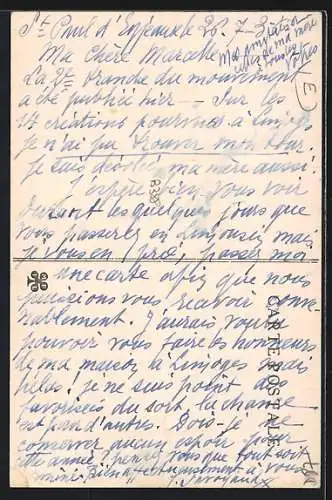 St Paul d'Eyjeaux le 26-7-3
Ma Chère Marcelle
Mes amitiés
celles de ma mère
à tous les
chers
E
La 2e tranche du mouvement
a été publiée hier – Sur les
17 créations pourvues à Limoges
je n'ai pu trouver mon tour.
Je suis désolée, ma mère aussi.
J'espère bien vous voir
durant les quelques jours que
vous passerez en Limousin mais
je vous en prie, passez moi
une carte afin que nous
puissions vous recevoir conve-
nablement. J'aurais voulu
pouvoir vous faire les honneurs
de ma maison à Limoges mais
hélas! je ne suis point des
favorisées du sort, la chance
est pour d'autres. Dois-je
conserver aucun espoir pour
cette année, pensez vous que tout soit
fini. Bien affectueusement à vous
CARTE POSTALE